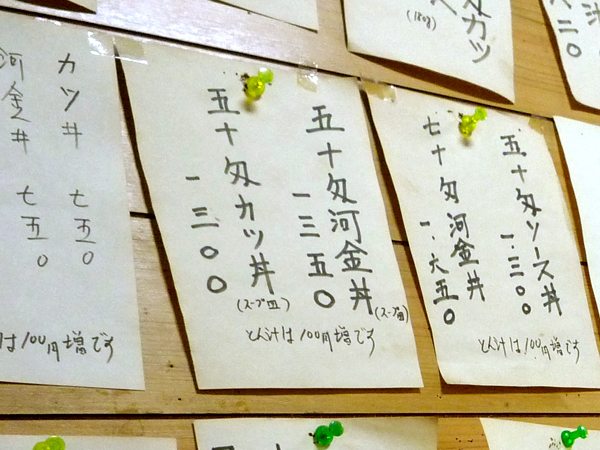 匁カツ
(180g)
五十匁ソース丼 一.三〇〇
七十匁河金丼 一.六五〇
とん汁は100円増です
五十匁河金丼 一三五〇
(スープ皿)
五十匁カツ丼 一三〇〇
(スープ皿)
とん汁は100円増です
カツ丼 七五〇
河金丼 七五〇
は100円増です